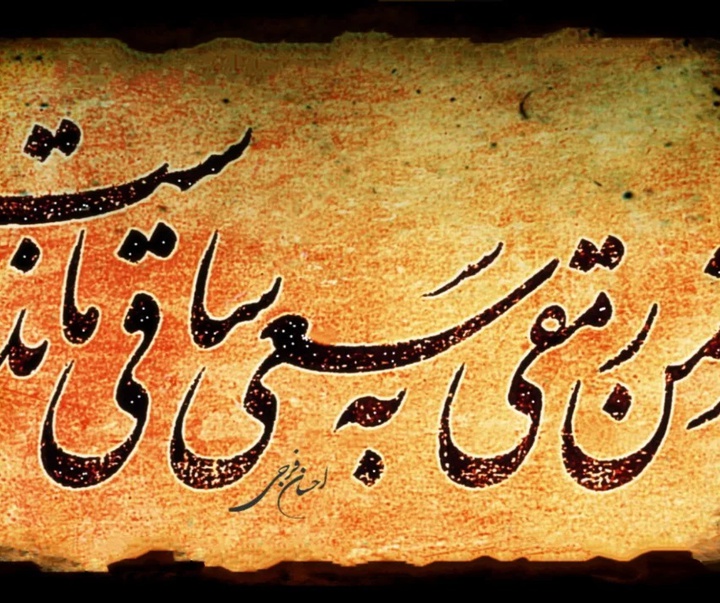 من رمقی به سعی ساقی ماندست
احسان فرجی